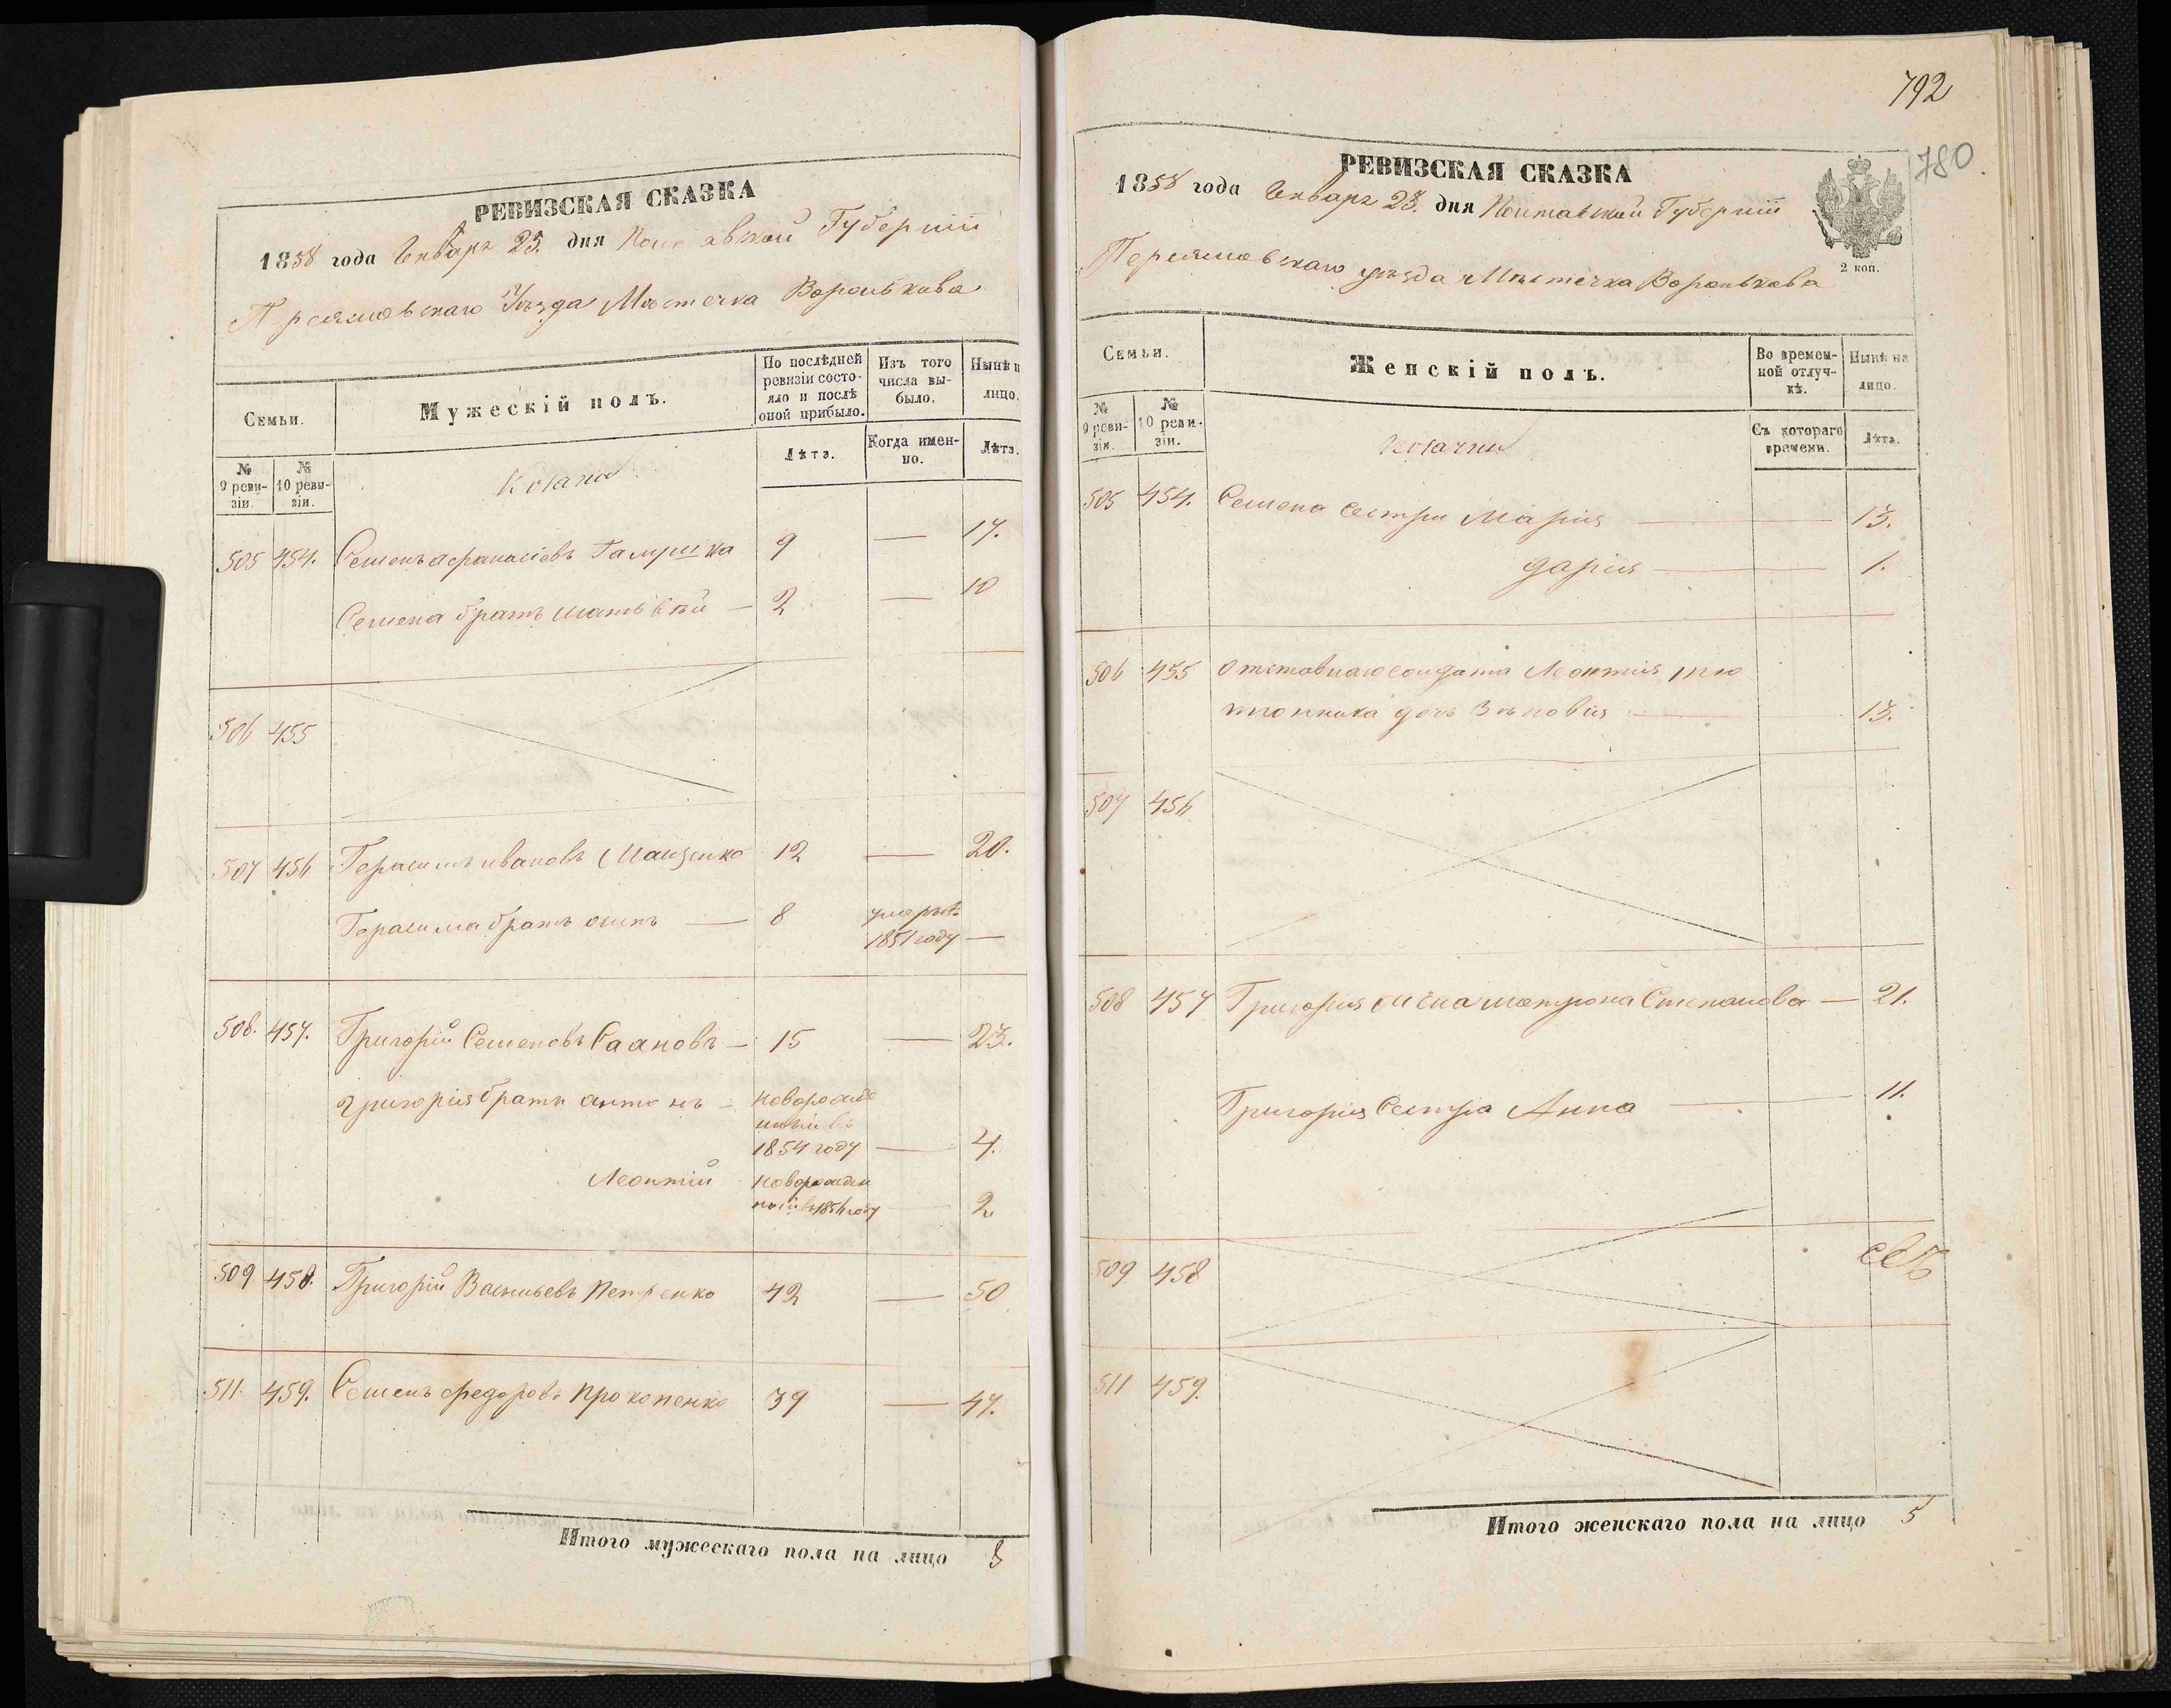 РЕВИЗСКАЯ СКАЗКА
1858 года Генваря 23. дня Полтавской Губерніи
Переяславскаго Уѣзда Мѣстечка Воронькова
Семьи.
Мужескій полъ.
По послѣдней ревизіи состо-
яло и послѣ
оной прибыло.
Изъ того
числа вы-
было.
Нынѣ н
лицо.
№
9 реви-
зіи.
№
10 реви-
зіи.
Козаки
Лѣтъ.
Когда имен-
но.
Лѣтъ.
505 454. Семенъ Афанасіевъ Галушка 9 — 17.
Семена братъ Матвѣй — 2 — 10
506 455
507 456 Герасимъ Ивановъ Маценко 12 — 20.
Герасима братъ Осипъ — 8 умеръ въ
1851 году —
508. 457. Григорій Семеновъ — 15 — 23.
Григорія братъ Антонъ — новорожде
нный въ
1854 году — 4.
Леонтій новорожден
ный въ 1856 году 2
509 458. Григорій Васильевъ Петренко 42 — 50
511. 459. Семенъ Федоровъ Прокопенко 39 — 47.
Итого мужескаго пола на лицо 8
792
780
РЕВИЗСКАЯ СКАЗКА
1858 года Генваря 23. дня Полтавской Губерніи
Переяславскаго уѣзда Мѣстечка Воронькова
2 коп.
Семьи.
Женскій полъ.
Во времен-
ной отлуч-
кѣ.
Нынѣ на
лицо.
№
9 реви-
зіи.
№
10 реви-
зіи.
Козачки
Съ котораго
времени.
Лѣта.
505 454. Семена сестры Марія — 13.
Дарія — 1.
506 455 Отставнаго солдата Леонтія Тю
тюнника дочь Зѣновія — 13.
507 456
508 457 Григорія жена Матрона Степанова — 21.
Григорія Сестра Анна — 11.
509 458
511 459.
Итого женскаго пола на лицо 5